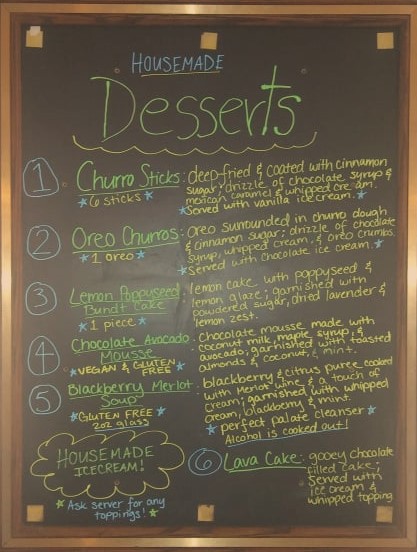 HOUSEMADE
Desserts
1 Churro Sticks: deep-fried & coated with cinnamon
sugar; drizzle of chocolate syrup &
mexican caramel & whipped cream.
*6 sticks* *Served with vanilla ice cream.*
2 Oreo Churros: oreo surrounded in churro dough
& cinnamon sugar; drizzle of chocolate
syrup, whipped cream, & oreo crumbs.
*1 oreo* *Served with chocolate ice cream.*
3 Lemon Poppyseed Bundt Cake: lemon cake with poppyseed &
lemon glaze; garnished with
powdered sugar, dried lavender &
*1 piece* lemon zest.
4 Chocolate Avocado Mousse: chocolate mousse made with
coconut milk, maple syrup, &
avocado; garnished with toasted
*VEGAN & GLUTEN FREE* almonds & coconut, & mint.
5 Blackberry Merlot Soup: blackberry & citrus puree cooked
with Merlot wine & a touch of
cream; garnished with whipped
cream, blackberry & mint.
*GLUTEN FREE* *perfect palate cleanser*
2oz glass Alcohol is cooked out!
HOUSEMADE
ICECREAM!
*Ask server for any
toppings!*
6 Lava Cake: gooey chocolate
filled cake;
Served with
ice cream &
whipped topping